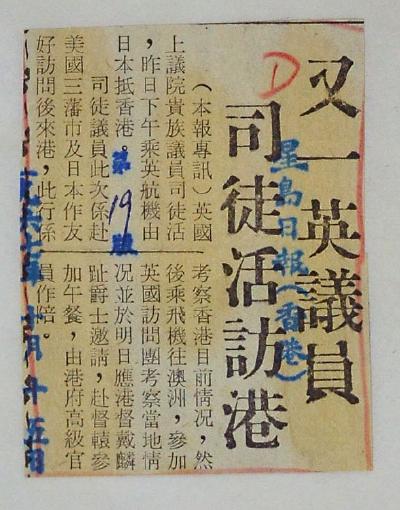 又一英議員
司徒活訪港
D
星島日報(香港)
（本報專訊）英國
上議院貴族議員司徒活
，昨日下午乘英航機由
日本抵香港。
司徒議員此次係赴
美國三藩市及日本作友
好訪問後來港，此行係
考察香港目前情況，然
後乘飛機往澳洲，參加
英國訪問團考察當地情
況並於明日應港督戴麟
趾爵士邀請，赴督轅參
加午餐，由港府高級官
員作陪。
第19版
十月